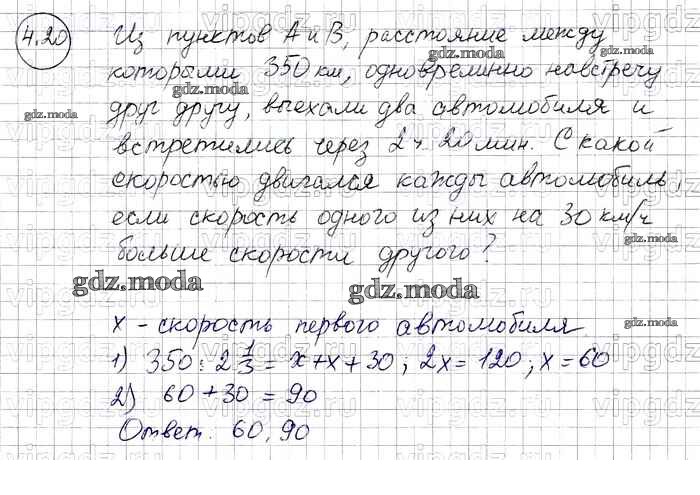 4.20
Из пунктов А и В, расстояние между
которыми 350 км, одновременно навстречу
друг другу, выехали два автомобиля и
встретились через 2 ч 20 мин. С какой
скоростью двигался кажды автомобиль,
если скорость одного из них на 30 км/ч
больше скорости другого?
х - скорость первого автомобиля
1) 350 : 2 1/3 = х + х + 30 ; 2х = 120 ; х = 60
2) 60 + 30 = 90
Ответ: 60, 90
gdz.moda
gdz.moda
gdz.moda
gdz.moda
gdz.moda
gdz.moda
gdz.moda
gdz.moda
gdz.moda